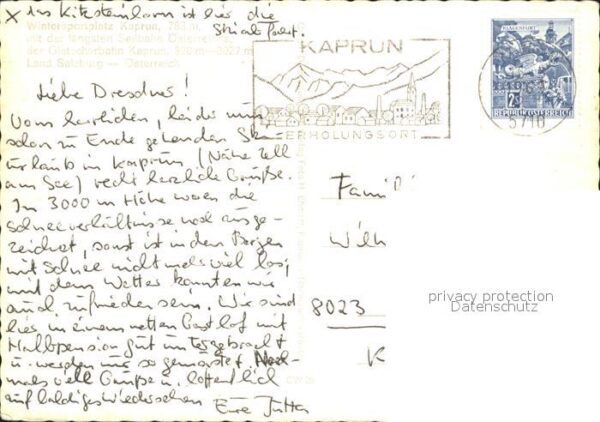 x das Kitzsteinhorn ist hier die
Skiabfahrt.
Wintersportplatz Kaprun, 786 m,
mit der längsten Seilbahn Österreichs
der Gletscherbahn Kaprun, 920 m—3027 m
Land Salzburg — Österreich
KAPRUN
ERHOLUNGSORT
KLAGENFURT
2S
REPUBLIK ÖSTERREICH
5710
Liebe Dresdner!
Vom herrlichen, leider nun
schon zu Ende gehenden Ski-
urlaub in Kaprun (Nähe Zell
am See) recht herzliche Grüße.
In 3000 m Höhe waren die
Schneeverhältnisse noch ausge-
zeichnet, sonst ist in den Bergen
mit Schnee nicht mehr viel los,
mit dem Wetter konnten wir
auch zufrieden sein. Wir sind
hier in einem netten Gasthof mit
Halbpension gut untergebracht
u. werden nur so gemästet. Noch-
mals viele Grüße u. hoffentlich
auf baldiges Wiedersehen
Eure Jutta
Famili
Wilh
8023
K
privacy protection
Datenschutz